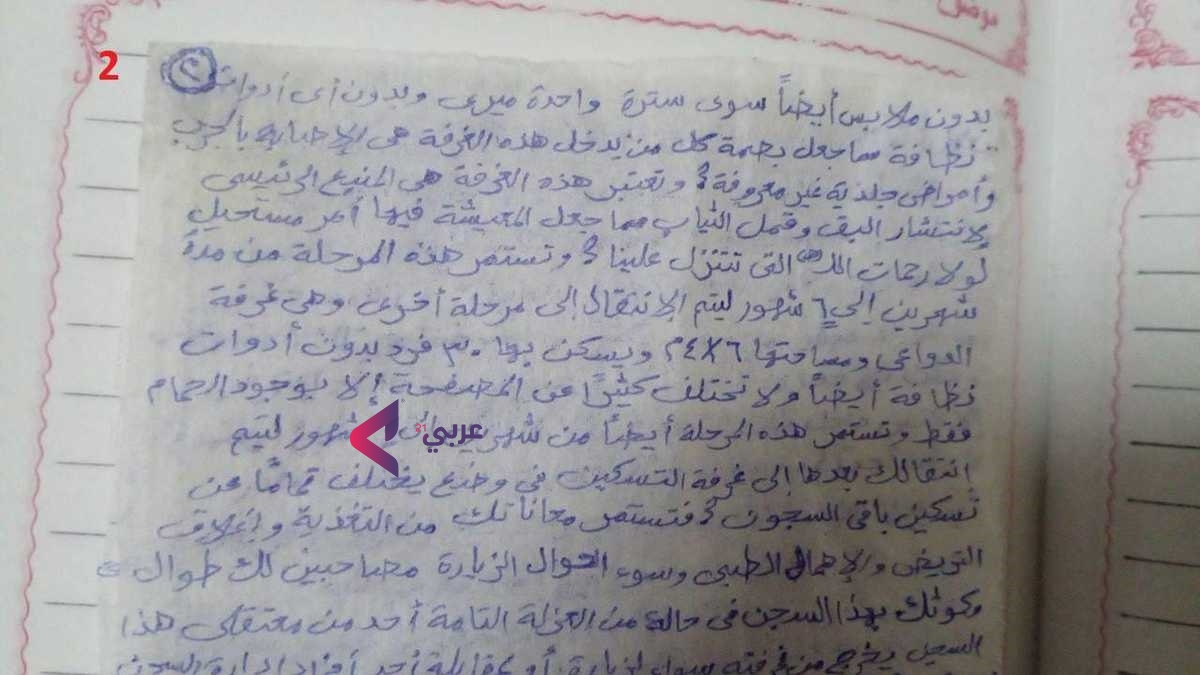 2
٢
بدون ملابس أيضاً سوى سترة واحدة ميرى وبدون أى أدوات
نظافة مما جعل بصمة كل من يدخل هذه الغرفة هى الإصابة بالجرب
وأمراض جلدية غير معروفة، وتعتبر هذه الغرفة هى المنبع الرئيسى
لإنتشار البق وقمل الثياب مما جعل المعيشة فيها أمر مستحيل
لولا رحمات الله التى تتنزل علينا، وتستمر هذه المرحلة من مدة
شهرين إلي ٦ شهور ليتم الإنتقال إلى مرحلة أخرى وهى غرفة
الدواعى ومساحتها ٦×٤م ويسكن بها ٣٠ فرد بدون أدوات
نظافة أيضاً ولا تختلف كثيرًا عن المصفحة إلا بوجود الحمام
فقط وتستمر هذه المرحلة أيضاً من شهرين شهور ليتم
عربي21
انتقالك بعدها إلى غرفة التسكين فى وضع يختلف تمامًا عن
تسكين باقى السجون، فتستمر معاناتك من التغذية وإغلاق
التريض والإهمال الطبى وسوء الزيارة مصاحبين لك طوال
مكوثك بهذا السجن فى حالة من العزلة التامة أحد من معتقلى هذا
السجن يخرج من غرفته سواء لزيارة أو مقابلة أحد أفراد إدارة السجن